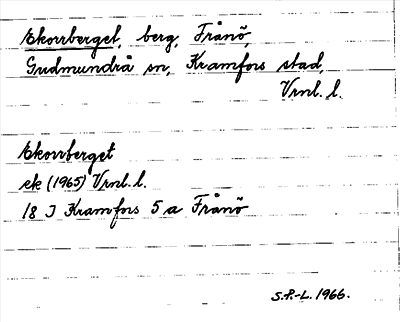 Ekorrberget, berg, Frånö,
Gudmundrå sn, Kramfors stad,
Vrnl. l.
Ekorrberget
ek (1965) Vrnl. l.
18 J Kramfors 5 a Frånö
S.P.-L. 1966.